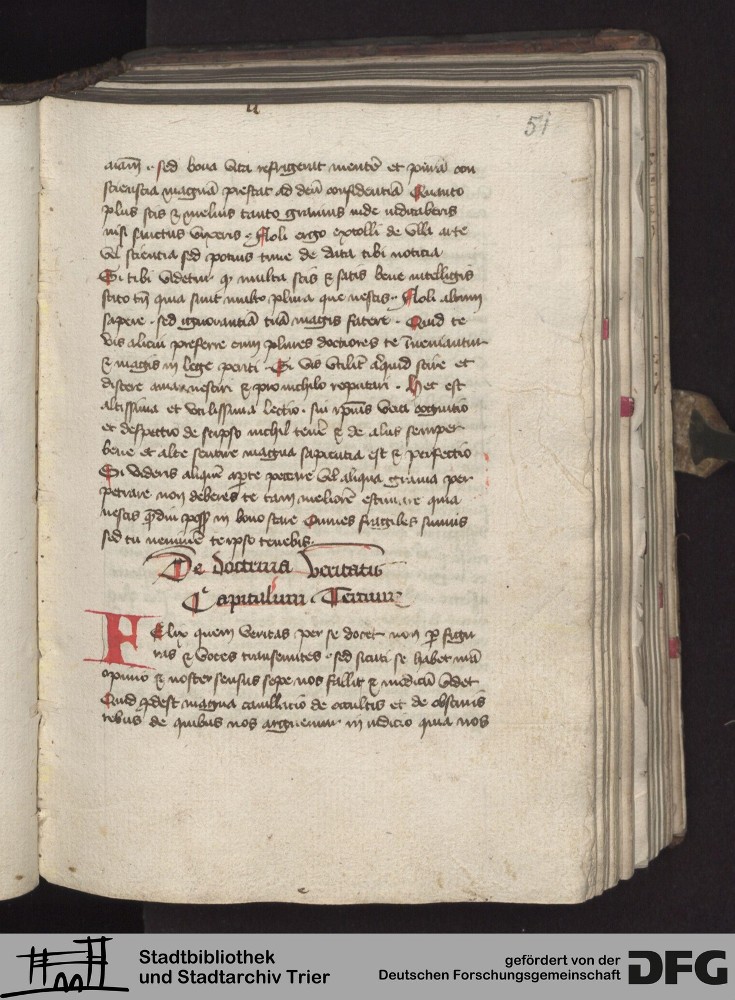 51
aiam̄. sed bona vita refrigerat mentē et pura con
sciencia magnā prestat ad deū confidenciā Quanto
plus scis et melius tanto gravius inde iudicaberis
nisi sanctius vixeris. Noli ergo extolli de ulla arte
vel sciencia sed pocius time de data tibi noticia
Si tibi videtur qȝ multa scis et satis bene intelligis
scito tn̄ quia sunt multo plura que nescis. Noli altum
sapere. sed ignoranciā tuā magis fatere. Quid te
vis alicui preferre cum plures doctiores te inveniantur
et magis in lege periti. Si vis utilit̄ aliquid scire et
discere ama nesciri et pro nichilo reputari. Hec est
altissima et utilissima lectio. sui ip̄ius vera cognitio
et despectio de seipso nichil tenere et de aliis semper
bene et alte sentire magna sapiencia est et perfectio
Si videris aliquē aperte peccare vel aliqua gravia per
petrare non deberes te tam meliorē estimare quia
nescis qᵃm diu possis in bono stare Omnes fragiles sumus
sed tu neminē te ipso tenebis.
De doctrina veritatis
Capitulum Tercium
Felix quem veritas per se docet non p̄ figu
ras et voces transeuntes. sed sicuti se habet nr̄a
opinio et noster sensus sepe nos fallit et modicū videt
Quid prodest magna cavillacio de occultis et de obscuris
rebus de quibus nos arguemur in iudicio quia nos
Stadtbibliothek
und Stadtarchiv Trier
gefördert von der
Deutschen Forschungsgemeinschaft
DFG